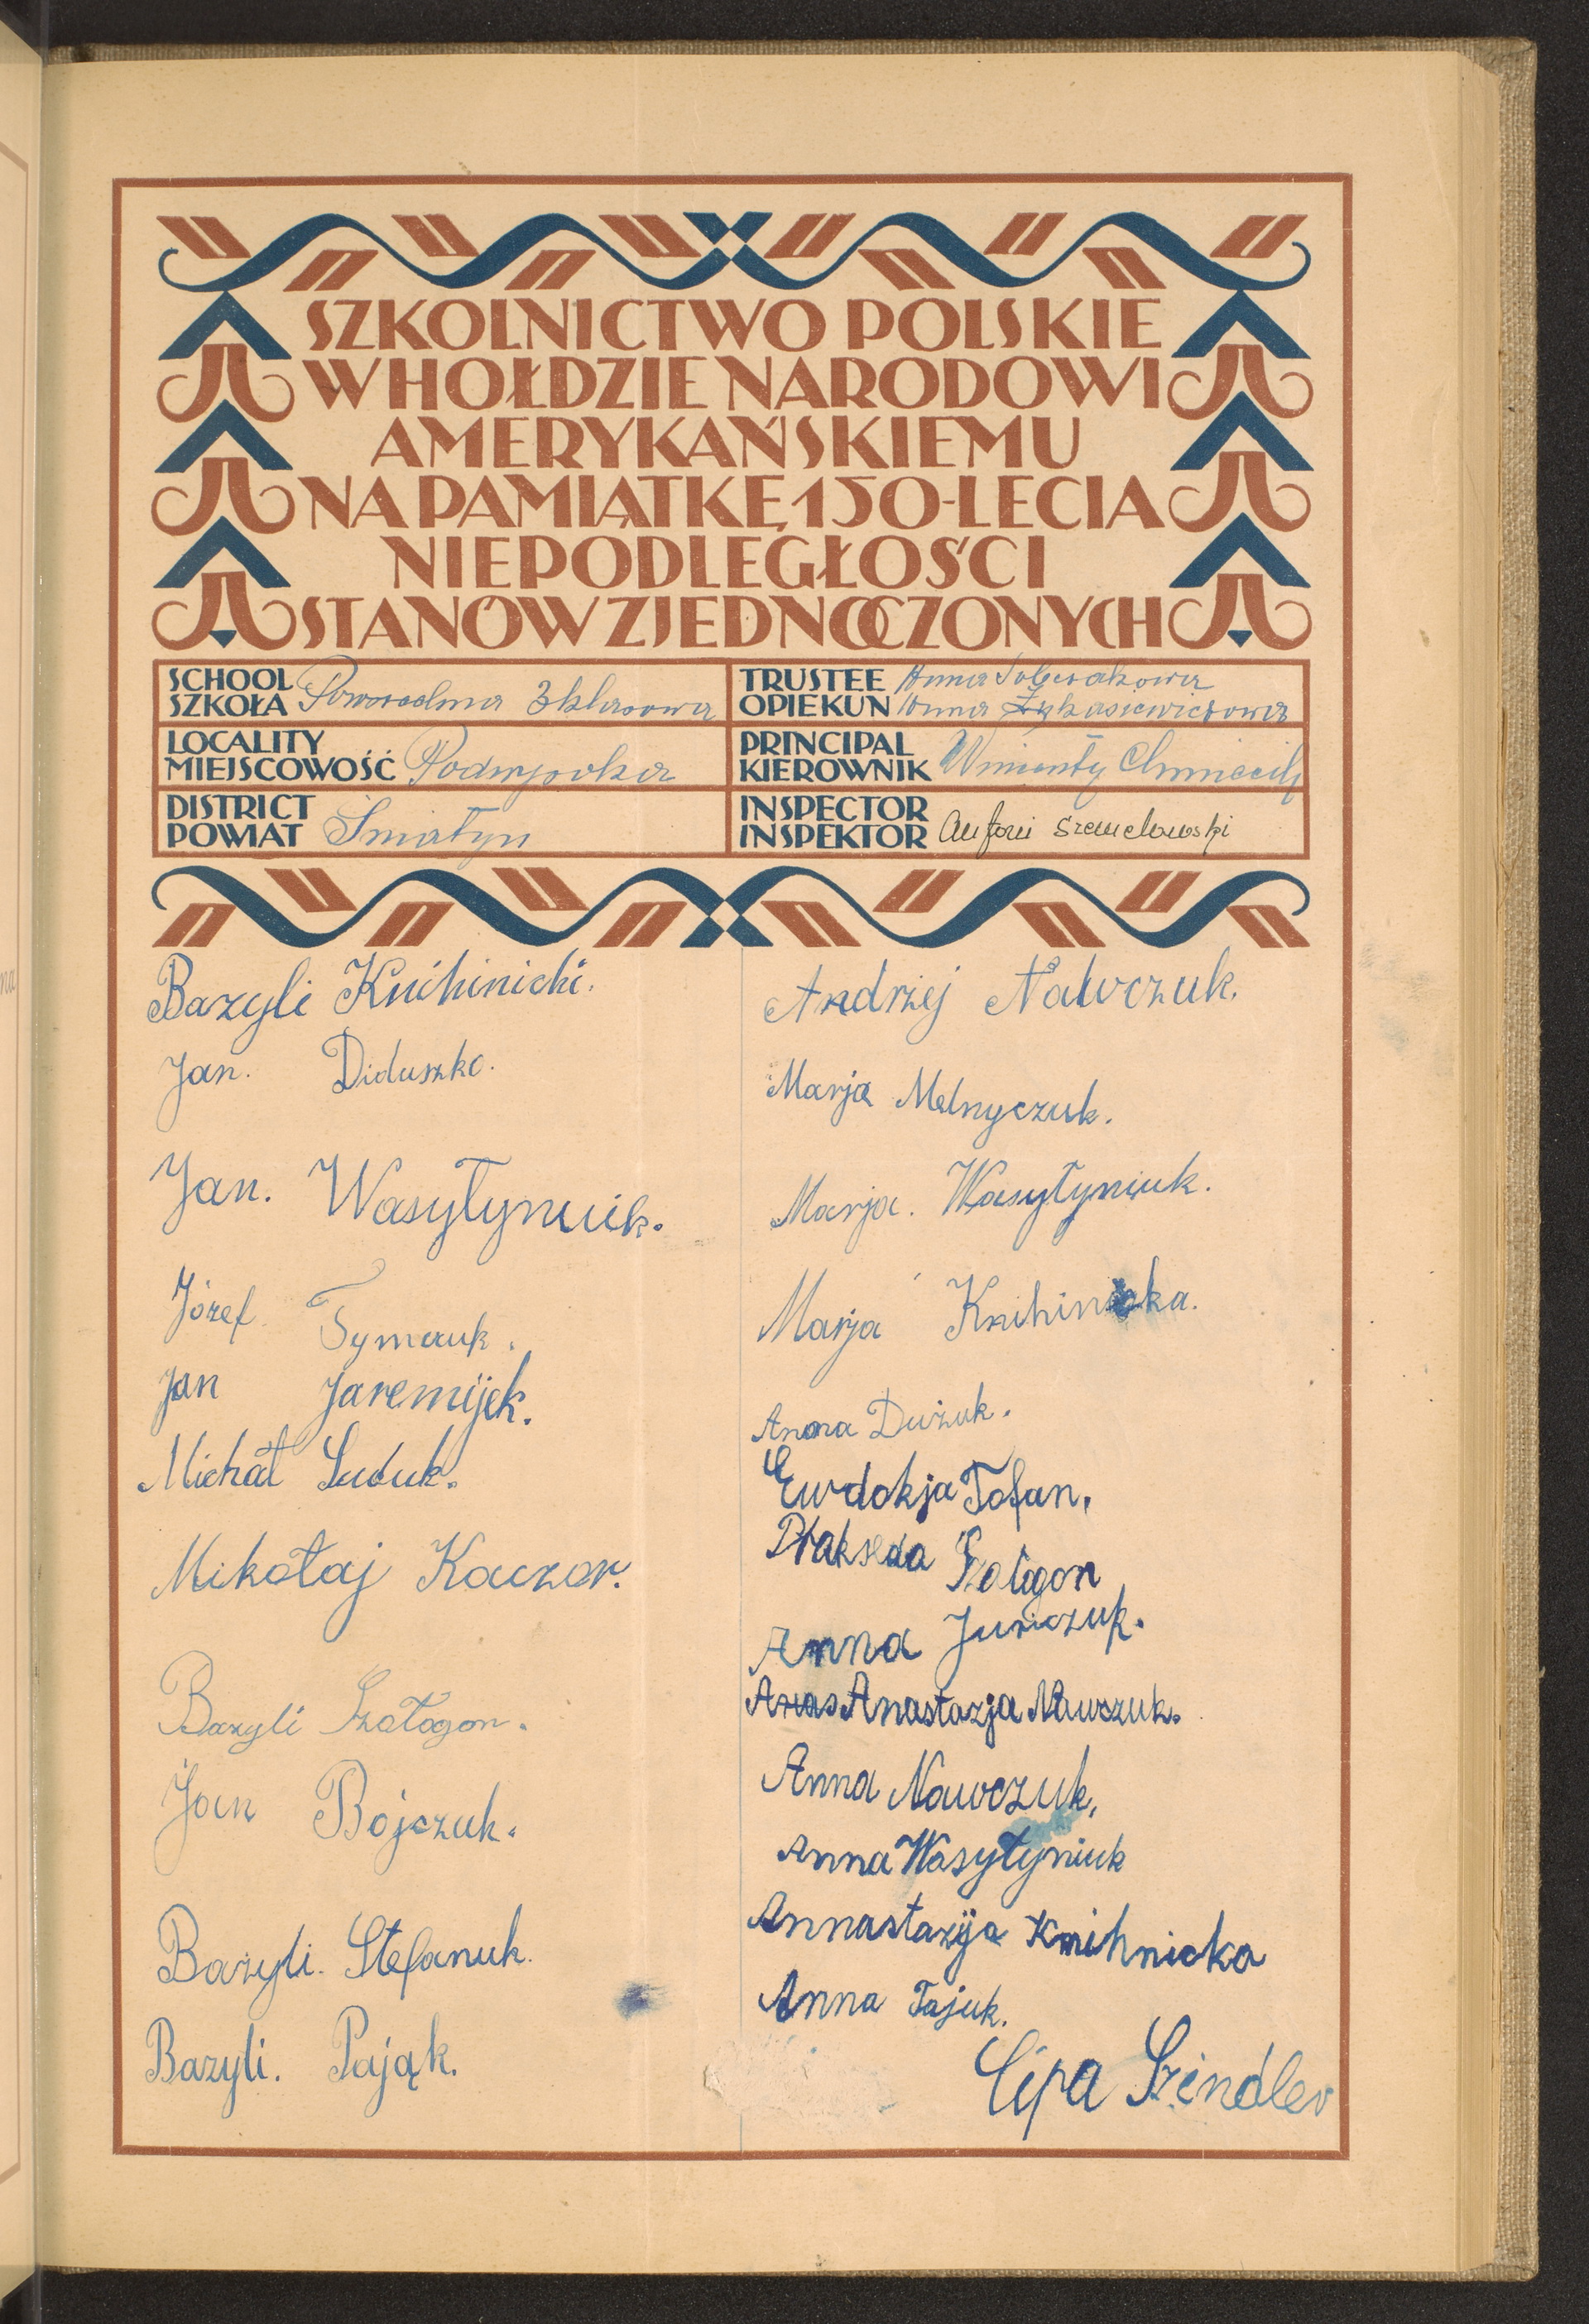 SZKOLNICTWO POLSKIE
W HOŁDZIE NARODOWI
AMERYKAŃSKIEMU
NA PAMIĄTKĘ 150-LECIA
NIEPODLEGŁOŚCI
STANÓW ZJEDNOCZONYCH
SCHOOL
SZKOŁA 3 klasowa
TRUSTEE Anna
OPIEKUN Anna Łukasiewiczowa
LOCALITY
MIEJSCOWOŚĆ Podwysoka
PRINCIPAL
KIEROWNIK
DISTRICT
POWIAT Śniatyn
INSPECTOR
INSPEKTOR Antoni
Bazyli Knihinicki.
Jan. Diduszko.
Jan. Wasyłyniuk.
Józef Tymczuk.
Jan Jaremijek.
Michał Suduk.
Mikołaj Kaczor.
Bazyli Szołogon.
Jan Bojczuk.
Bazyli. Stefanuk.
Bazyli. Pająk.
Andrzej Nawczuk.
Marja Melnyczuk.
Marja. Wasyłyniuk.
Marja Knihinicka.
Anna Dużuk.
Ewdokja Tofan.
Prakseda Szologon
Anna Juriczuk.
Anas Anastazja Nawczuk.
Anna Nawczuk.
Anna Wasyłyniuk
Annastazija Knihnicka
Anna Tajuk.
Cipa Szindler